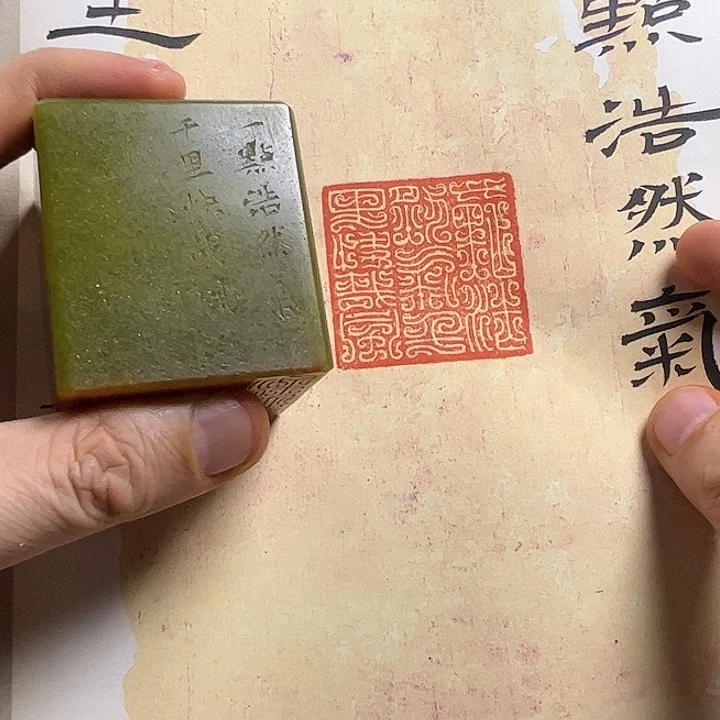 點浩然氣
一點浩
然氣千
里快哉風
一點浩然氣
千里快哉風